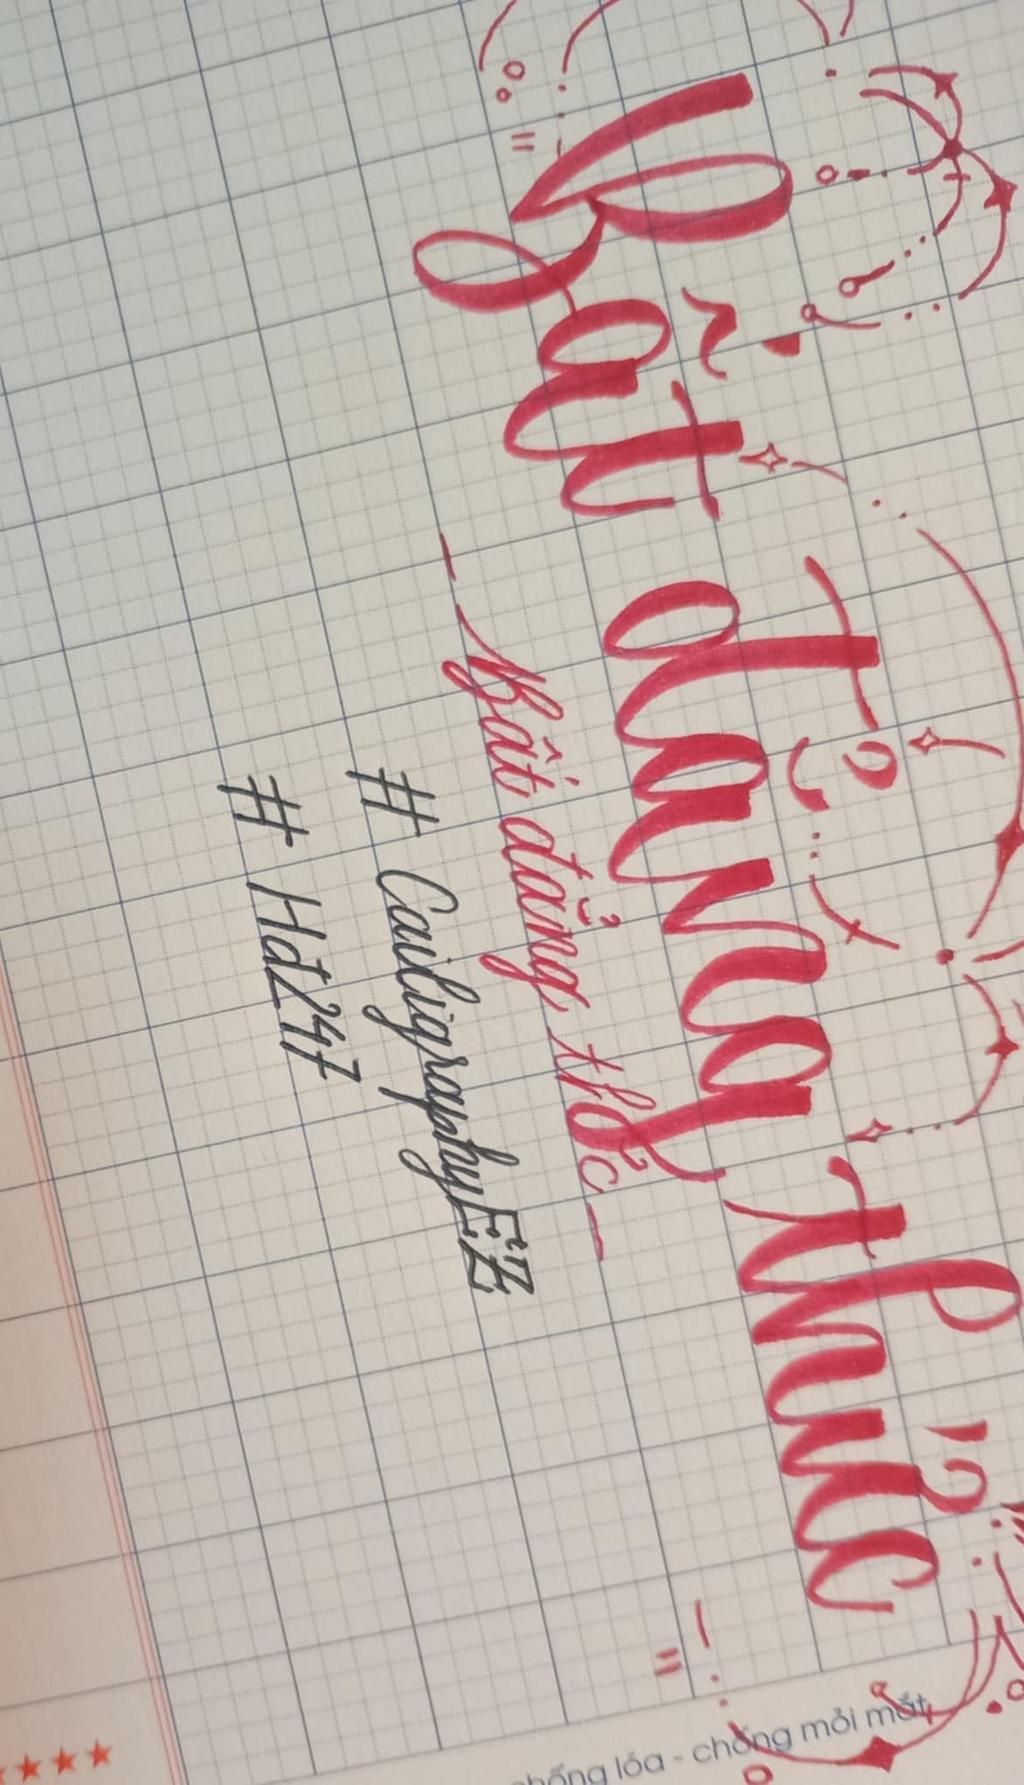 Bất đẳng thức
– Bất đẳng thức –
# CalligraphyEZ
# Hdt247
chống lóa - chống mỏi mắt